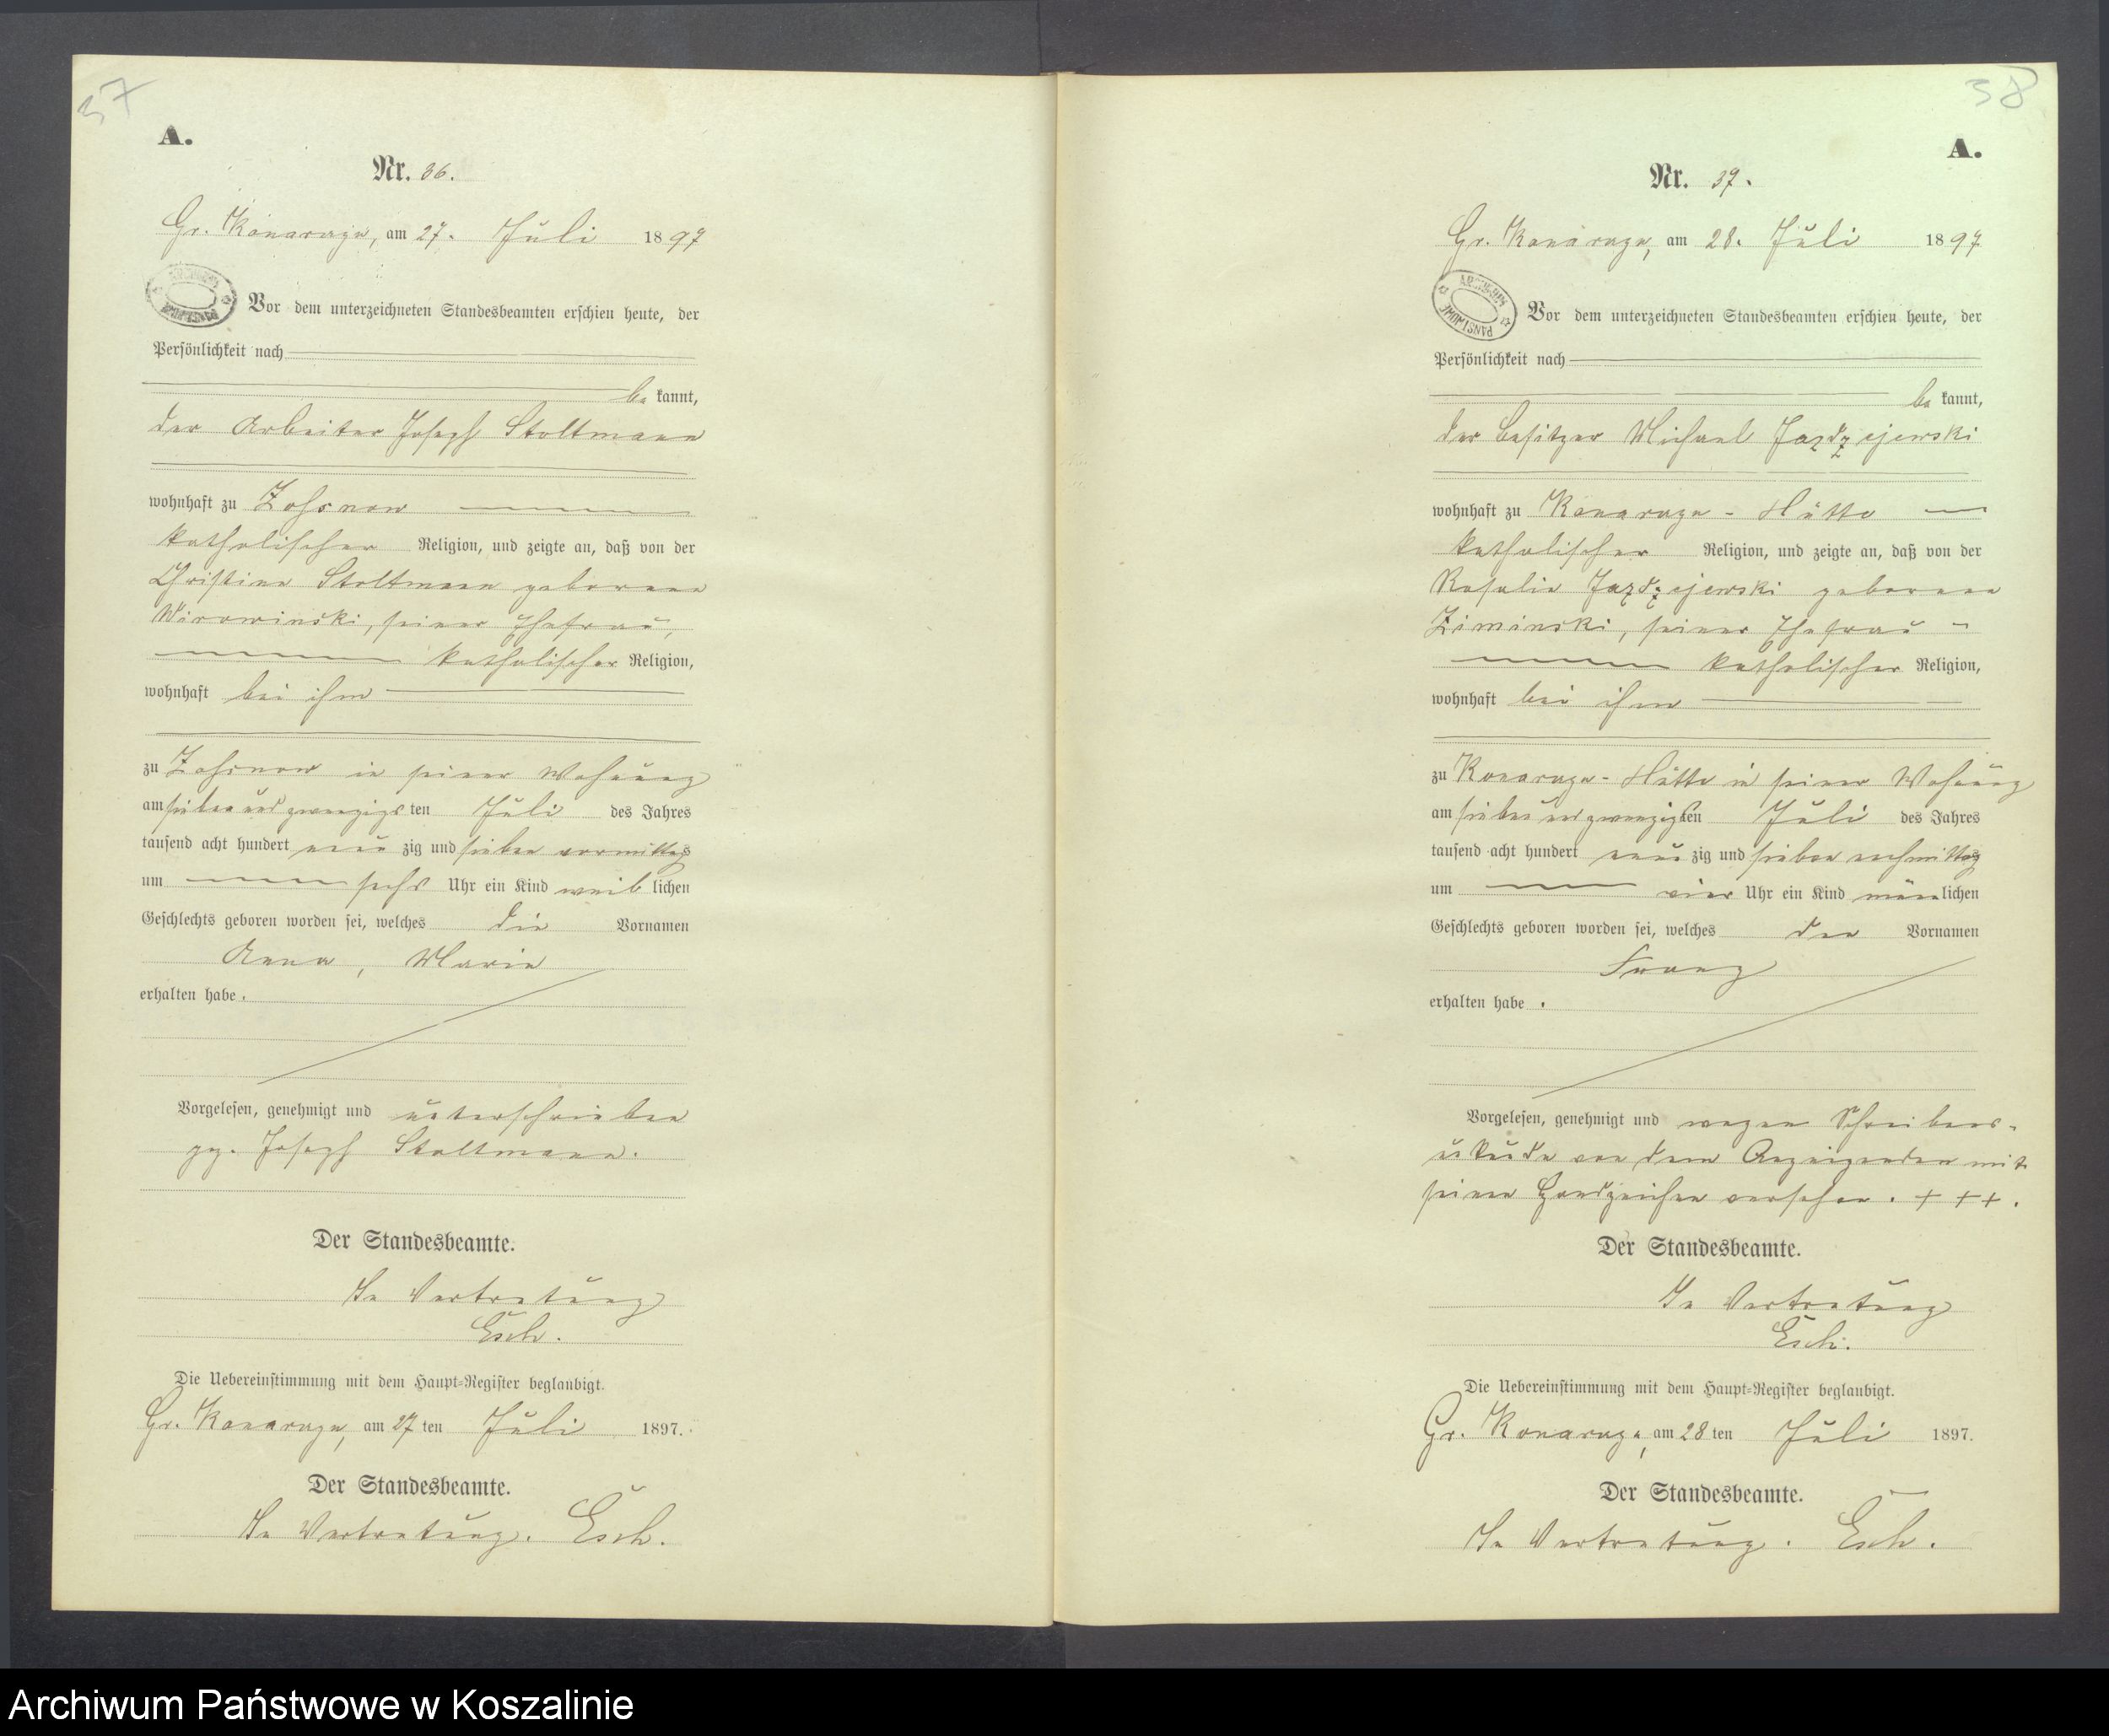 37
A.
Nr. 36.
Gr. Konarczyn, am 27. Juli 1897
Vor dem unterzeichneten Standesbeamten erschien heute, der
Persönlichkeit nach
be kannt,
der Arbeiter Joseph Stoltmann
wohnhaft zu
katholischer Religion, und zeigte an, daß von der
Christine Stoltmann geborene
seiner Ehefrau,
katholischer Religion,
wohnhaft bei ihm
zu in seiner Wohnung
am siebenundzwanzigsten Juli des Jahres
tausend acht hundert neun zig und sieben vormittags
um sechs Uhr ein Kind weib lichen
Geschlechts geboren worden sei, welches die Vornamen
Anna, Marie
erhalten habe.
Vorgelesen, genehmigt und unterschrieben
gez. Joseph Stoltmann.
Der Standesbeamte.
In Vertretung
Esch.
Die Uebereinstimmung mit dem Haupt-Register beglaubigt.
Gr. Konarczyn, am 27 ten Juli 1897.
Der Standesbeamte.
In Vertretung. Esch.
38
A.
Nr. 37.
Gr. Konarczyn, am 28. Juli 1897
Vor dem unterzeichneten Standesbeamten erschien heute, der
Persönlichkeit nach
be kannt,
der Besitzer Michael Jazdzejewski
wohnhaft zu Hütte
katholischer Religion, und zeigte an, daß von der
Rosalie Jazdzejewski geborene
Ziminski, seiner Ehefrau
katholischer Religion,
wohnhaft bei ihm
zu Hütte in seiner Wohnung
am siebenundzwanzigsten Juli des Jahres
tausend acht hundert neun zig und sieben nachmittag
um vier Uhr ein Kind männlichen
Geschlechts geboren worden sei, welches den Vornamen
Franz
erhalten habe.
Vorgelesen, genehmigt und wegen Schreibens-
unkunde von dem Anzeigenden mit
seinen Handzeichen versehen. + + +.
Der Standesbeamte.
In Vertretung
Esch.
Die Uebereinstimmung mit dem Haupt-Register beglaubigt.
Gr. Konarczyn, am 28 ten Juli 1897.
Der Standesbeamte.
In Vertretung. Esch.
Archiwum Państwowe w Koszalinie